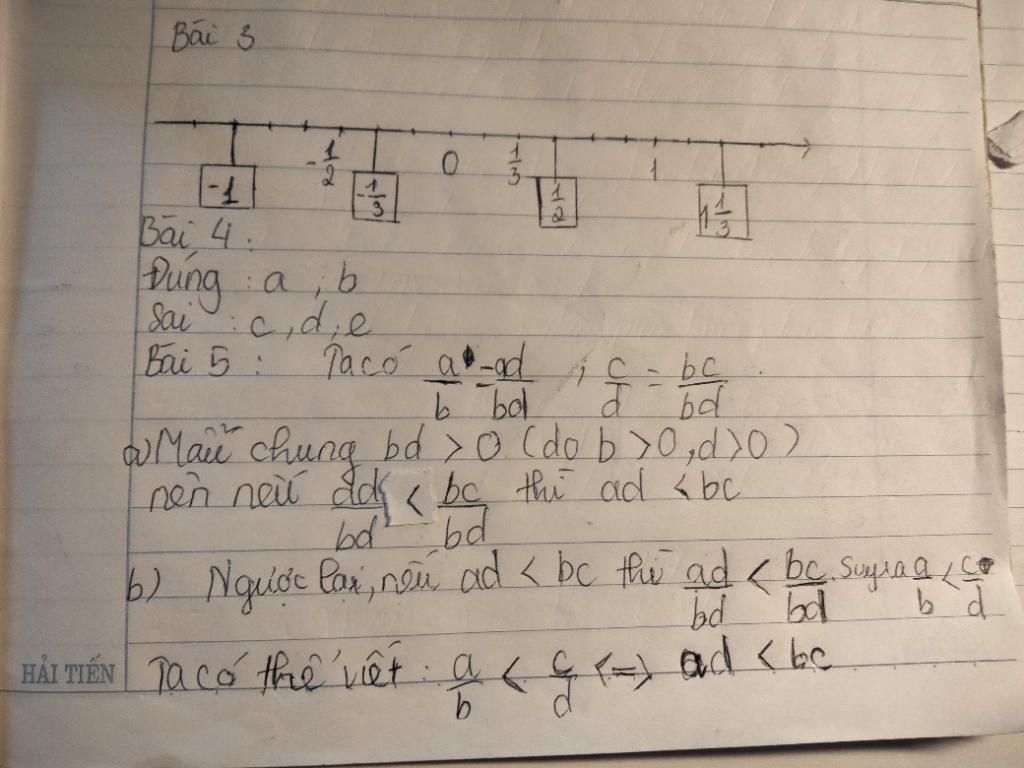 Bài 3
-1 -1/2 -1/3 0 1/3 1/2 1 1 1/3
Bài 4:
Đúng : a ; b
Sai : c, d, e
Bài 5 : Ta có a/b = ad/bd ; c/d = bc/bd
a) Mẫu chung bd > 0 (do b > 0, d > 0)
nên nếu ad/bd < bc/bd thì ad < bc
b) Ngược lại, nếu ad < bc thì ad/bd < bc/bd. Suy ra a/b < c/d
Ta có thể viết : a/b < c/d <=> ad < bc
HẢI TIẾN